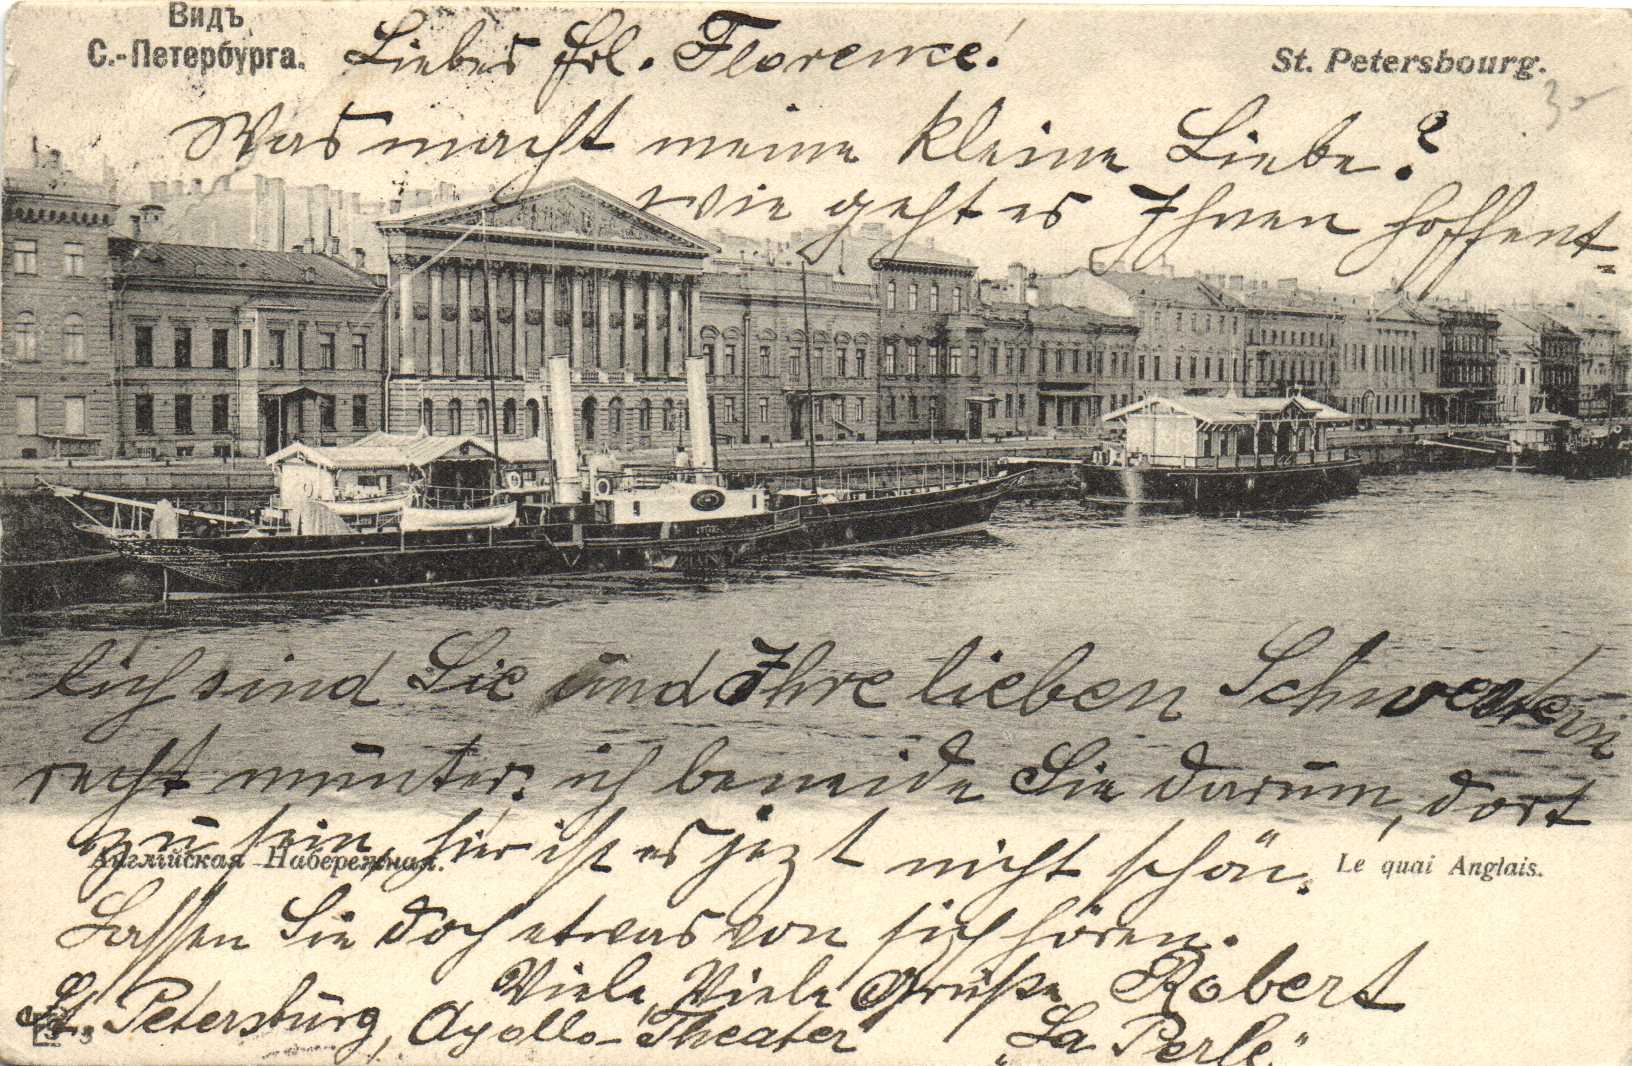 Видъ
С.-Петербурга.
St. Petersbourg.
30
Liebes Frl. Florence!
Was macht meine kleine Liebe?
wie geht es Ihnen hoffent-
lich sind Sie und Ihre lieben Schwestern
recht munter. ich beneide Sie darum, dort
zu sein, hier ist es jezt nicht schön.
Англійская Набережная.
Le quai Anglais.
Lassen Sie doch etwas von sich hören.
Viele, Viele Grüße Robert
St. Petersburg, Apollo-Theater "La Perle"